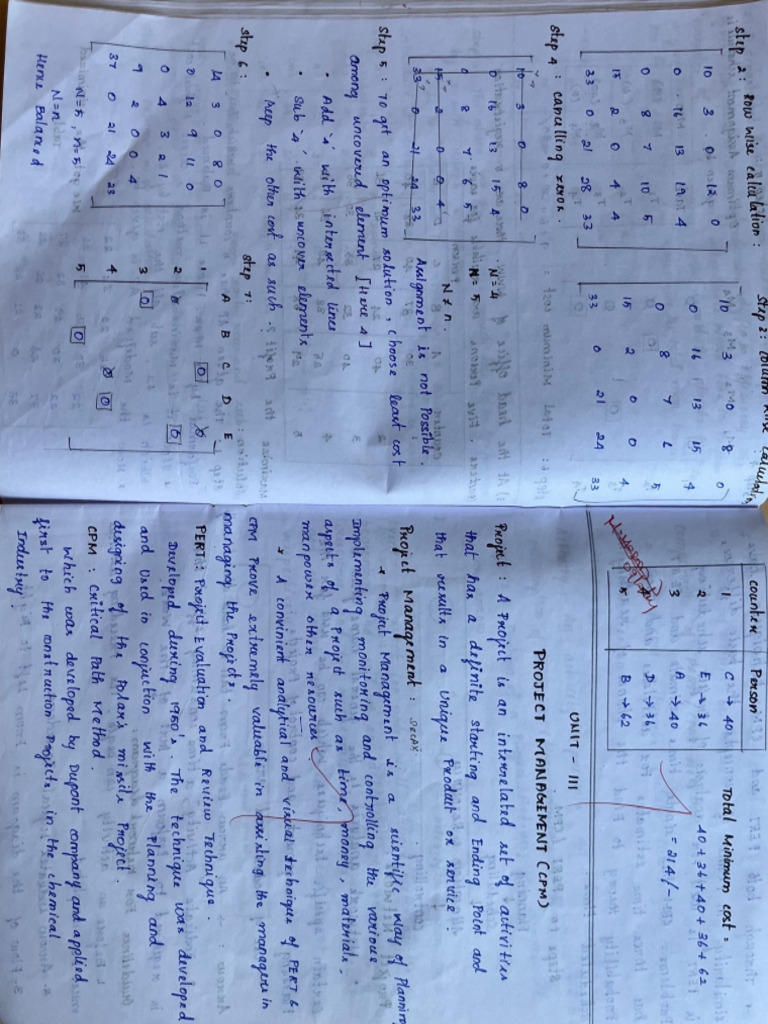 Step 2: Row wise calculation:
10 3 0 12 0
0 16 13 19 4
0 8 7 10 5
15 2 0 4 4
33 0 21 28 33
Step 3: column wise calculation
10 3 0 8 0
0 16 13 15 4
0 8 7 6 5
15 2 0 0 4
33 0 21 24 33
Step 4: cancelling zeros.
10 3 0 8 0
0 16 13 15 4
0 8 7 6 5
15 2 0 0 4
33 0 21 24 33
N=4
n=5
N≠n.
Assignment is not Possible.
Step 5: To get an optimum solution, choose least cost
among uncovered element [Here 4]
• Add '4' with intersected lines
• Sub '4' with uncover elements
• Keep the other cost as such.
Step 6:
14 3 0 8 0
0 12 9 11 0
0 4 3 2 1
9 2 0 0 4
37 0 21 24 23
N=5, n=5
N=n
Hence Balanced
Step 7:
A B C D E
1 0 0
2 0 0
3 0
4 0 0
5 0
counter Person
1 C → 40
2 E → 36
3 A → 40
4 D → 36
5 B → 62
Total Minimum cost =
40+36+40+36+62
= 214/-
UNIT - III
PROJECT MANAGEMENT (CPM)
Project: A Project is an interrelated set of activities
that has a definite starting and Ending Point and
that results in a unique Product or service.
Project Management:
→ Project Management is a scientific way of Planning
Implementing monitoring and controlling the various
aspects of a Project such as time, money, materials,
manpower other resources.
→ A convinient analytical and visual technique of PERT &
CPM Prove extremely valuable in assisting the managers in
managing the Projects.
PERT: Project Evaluation and Review Technique.
Developed during 1950's. The technique was developed
and used in conjuction with the Planning and
designing of the Polaris missile Project.
CPM: Critical Path Method.
which was developed by Dupont company and applied
first to the construction Projects in the chemical
Industry.